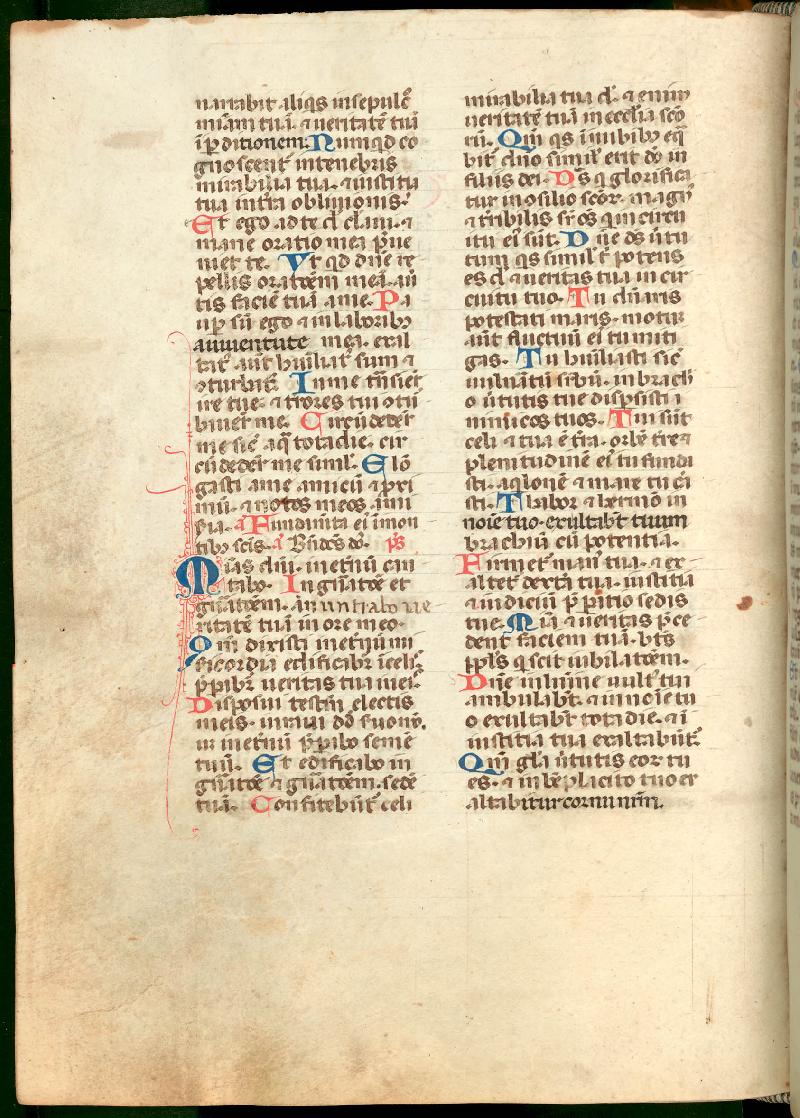 narrabit aliqs in sepulc̄
mīam tuā. ⁊ ueritatē tuā
ī ꝑditionem. Numqd co
gnoscent̄ in tenebris
mirabilia tua. ⁊ iustitia
tua in t̄ra obliuionis.
Et ego ad te d̄ clam̄. ⁊
mane oratio mea p̄ue
niet te. Vt qd dn̄e re
pellis oratōem meā. aū
tis faciē tuā a me. Pa
up̄ sū ego ⁊ in laboribꝰ
a iuuentute mea. exal
tat̄ aūt hūiliat̄ sum ⁊
ɔturbat̄. In me t̄nsier̄
ire tue. ⁊ t̄rores tui ɔtū
bauer̄ me. Circūdeder̄
me sic̄ aq̄ tota die. cir
cūdeder̄ me simł. Elō
gasti a me amicū ⁊ ꝓxi
mū. ⁊ notos meos a mi
sīa. a Fundam̄ta ei in mon
tibꝰ scīs. a Bn̄dcs dō. ps̄
Mīas dn̄i. in et̄nū can
tabo. In gn̄atōe et
gn̄atōem. ānuntiabo ue
ritatē tuā in ore meo.
Qm̄ dixisti in et̄nū mi
sericordia edificabr̄ ī celis.
p̄pabr̄ ueritas tua in ei.
Disposui testm̄ electis
meis. iuraui dd̄ s̄uo m̄o.
in et̄nū p̄pabo semē
tuū. Et edificabo in
gn̄atōe ⁊ gn̄atōem. sedē
tuā. Confitebūt̄ celi
mirabilia tua dn̄e. ⁊ enim
ueritatē tuā in ecclīa scō
rū. Qm̄ qs ī nubibꝰ eq̄
bit̄ dn̄o similˀ erit dō in
filiis dei. Ds̄ q glorifica
tur in ɔsilio scōr. magn̄
⁊ t̄ribilis sr̄ os̄ qui in circu
itu eiˀ sūt. Dn̄e ds̄ ūtu
tum qs similˀ t̄ potens
es dn̄e ⁊ ueritas tua in cir
cuitu tuo. Tu dn̄aris
potestati maris. motū
aūt fluctuū eiˀ tu miti
gas. Tu hūiliasti sic̄
uuln̄atū sr̄bū. in brachi
o ūtutis tue disp̄sisti i
nimicos tuos. Tui sūt
celi ⁊ tua ē t̄ra. orbē t̄re ⁊
plenitudinē eiˀ tu funda
sti. aqlonē ⁊ mare tu c̄a
sti. Thabor ⁊ hermō in
noīe tuo exultabt̄ tuum
brachiū cū potentia.
Firmet̄ manˀ tua. ⁊ ex
altet̄ dext̄a tua. iustitia
⁊ iudiciū p̄patio sedis
tue. Mīa ⁊ ueritas p̄ce
dent faciem tuā. bt̄s
ppl̄s q scit iubilatōem.
Dn̄e in lumīe uultˀ tui
ambulabt̄. ⁊ in noīe tu
o exultabt̄ tota die. ⁊ ī
iustitia tua exaltabūt̄.
Qm̄ glā ūtutis eor tu
es. ⁊ in bn̄placito tuo ex
altabitur cornu nrm̄.